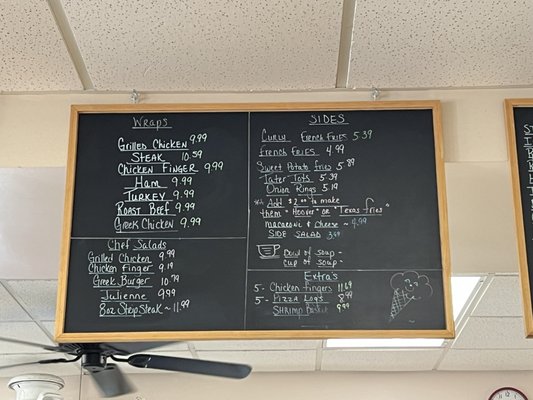 Wraps
Grilled Chicken 9.99
Steak 10.59
Chicken Finger 9.99
Ham 9.99
Turkey 9.99
Roast Beef 9.99
Greek Chicken 9.99
Chef Salads
Grilled Chicken 9.99
Chicken Finger 9.19
Greek Burger 10.79
Julienne 9.99
8oz Shop Steak ~ 11.99
Sides
Curly French Fries 5.39
French Fries 4.99
Sweet Potato Fries 5.89
Tater Tots 5.39
Onion Rings 5.19
Add $2.00 to make
them "Hoover" or "Texas fries"
macaroni & Cheese ~ 4.99
Side Salad 3.99
Bowl of Soup -
Cup of Soup -
Extra's
5 - Chicken Fingers 11.69
5 - Pizza Logs 8.99
Shrimp Basket 9.99